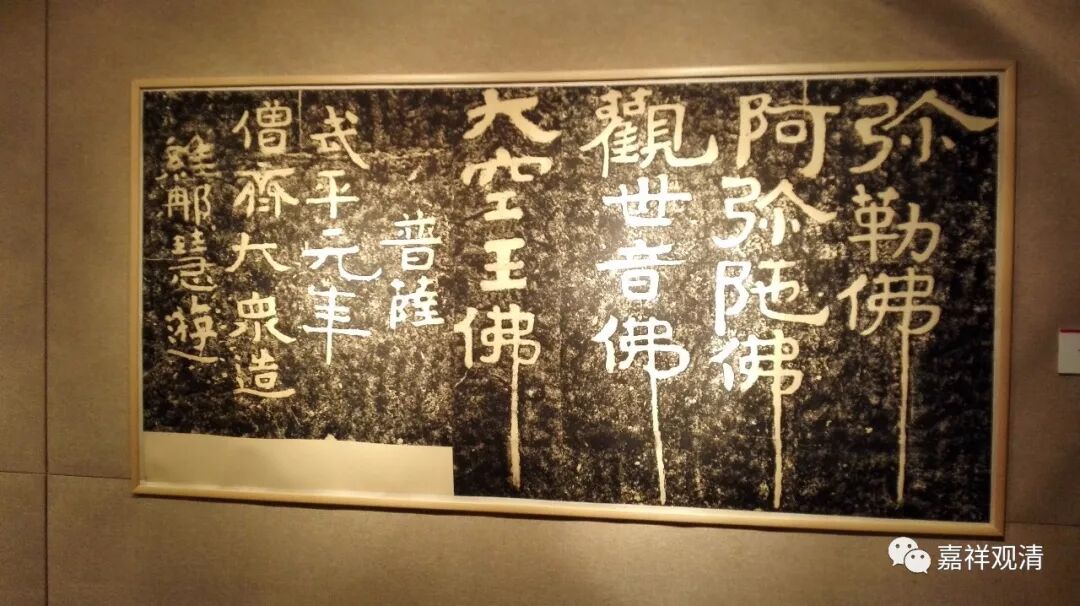 弥勒佛
阿弥陁佛
觀世音佛
大空王佛
普陸
武平元年
僧齊大衆造
維那慧遊
嘉祥观清